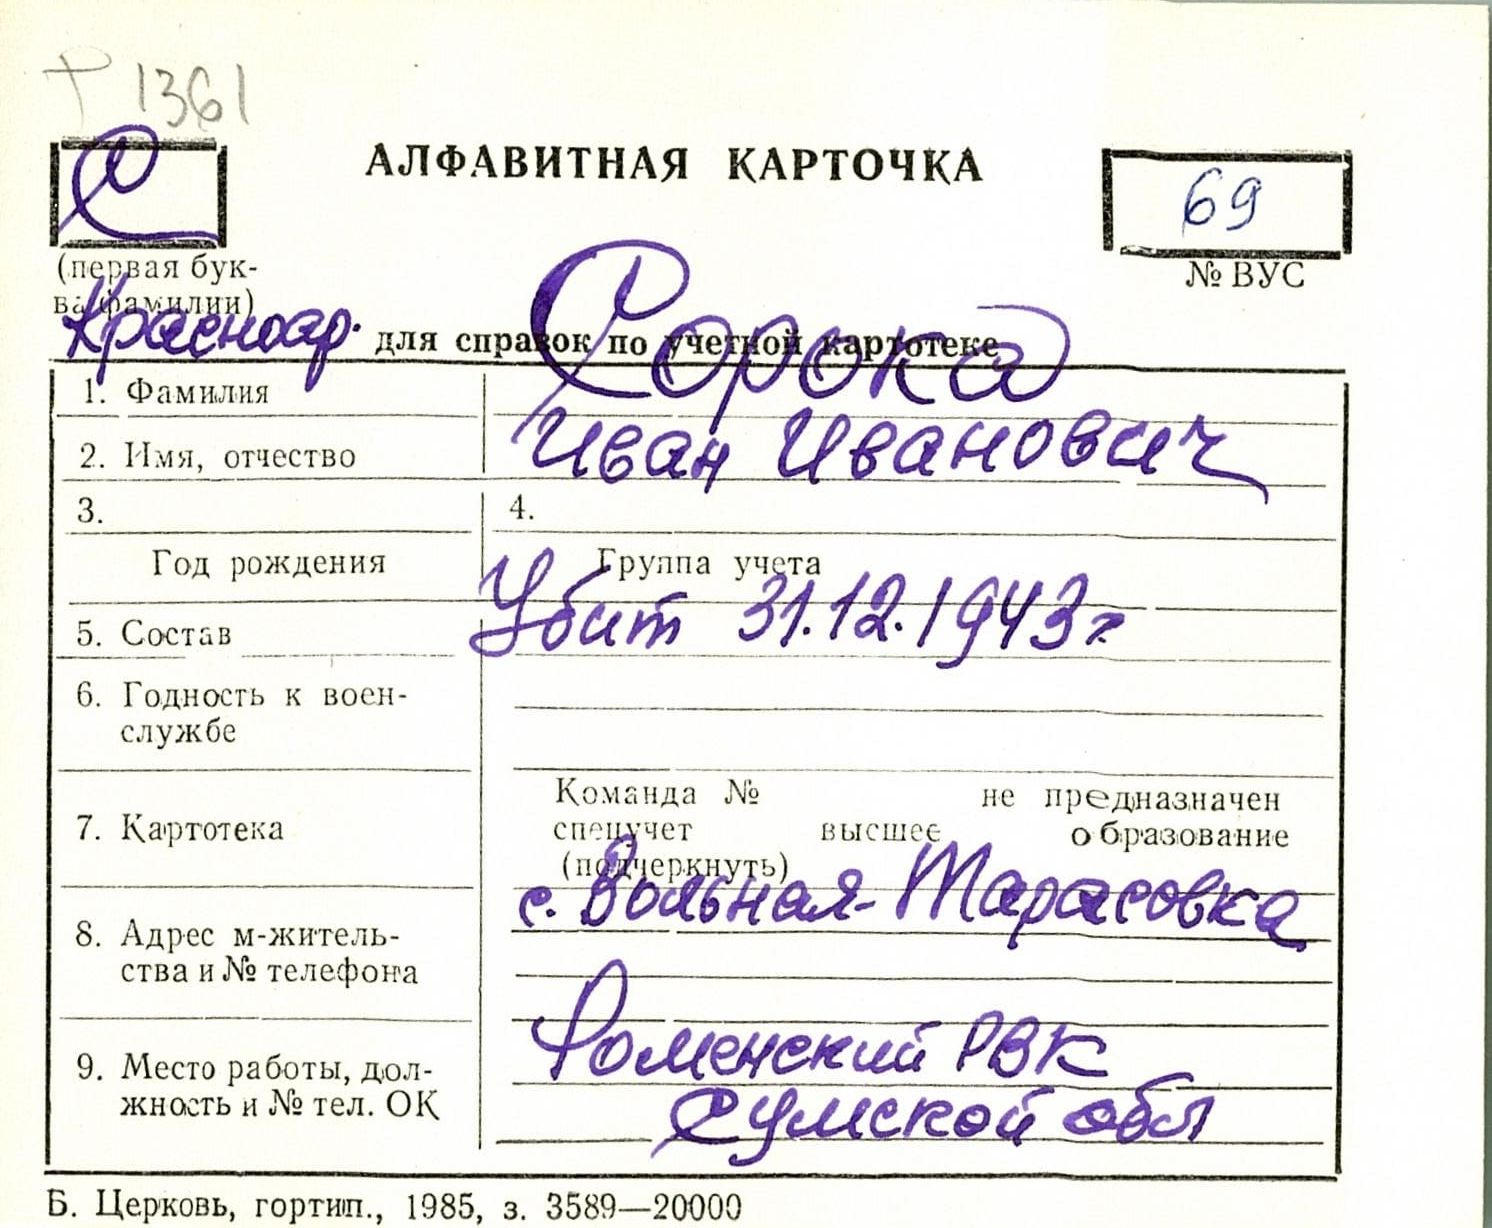 1361
С
АЛФАВИТНАЯ КАРТОЧКА
69
(первая бук-
ва фамилии)
№ ВУС
Красноар.
для справок по учетной картотеке
Сорока
1. Фамилия
2. Имя, отчество
Иван Иванович
3.
4.
Год рождения
Группа учета
Убит 31.12.1943 г
5. Состав
6. Годность к воен-
службе
7. Картотека
Команда № не предназначен
спецучет высшее образование
(подчеркнуть)
с. Вольная-Тарасовка
8. Адрес м-житель-
ства и № телефона
9. Место работы, дол-
жность и № тел. ОК
Роменский РВК
Сумской обл
Б. Церковь, гортип., 1985, з. 3589—20000